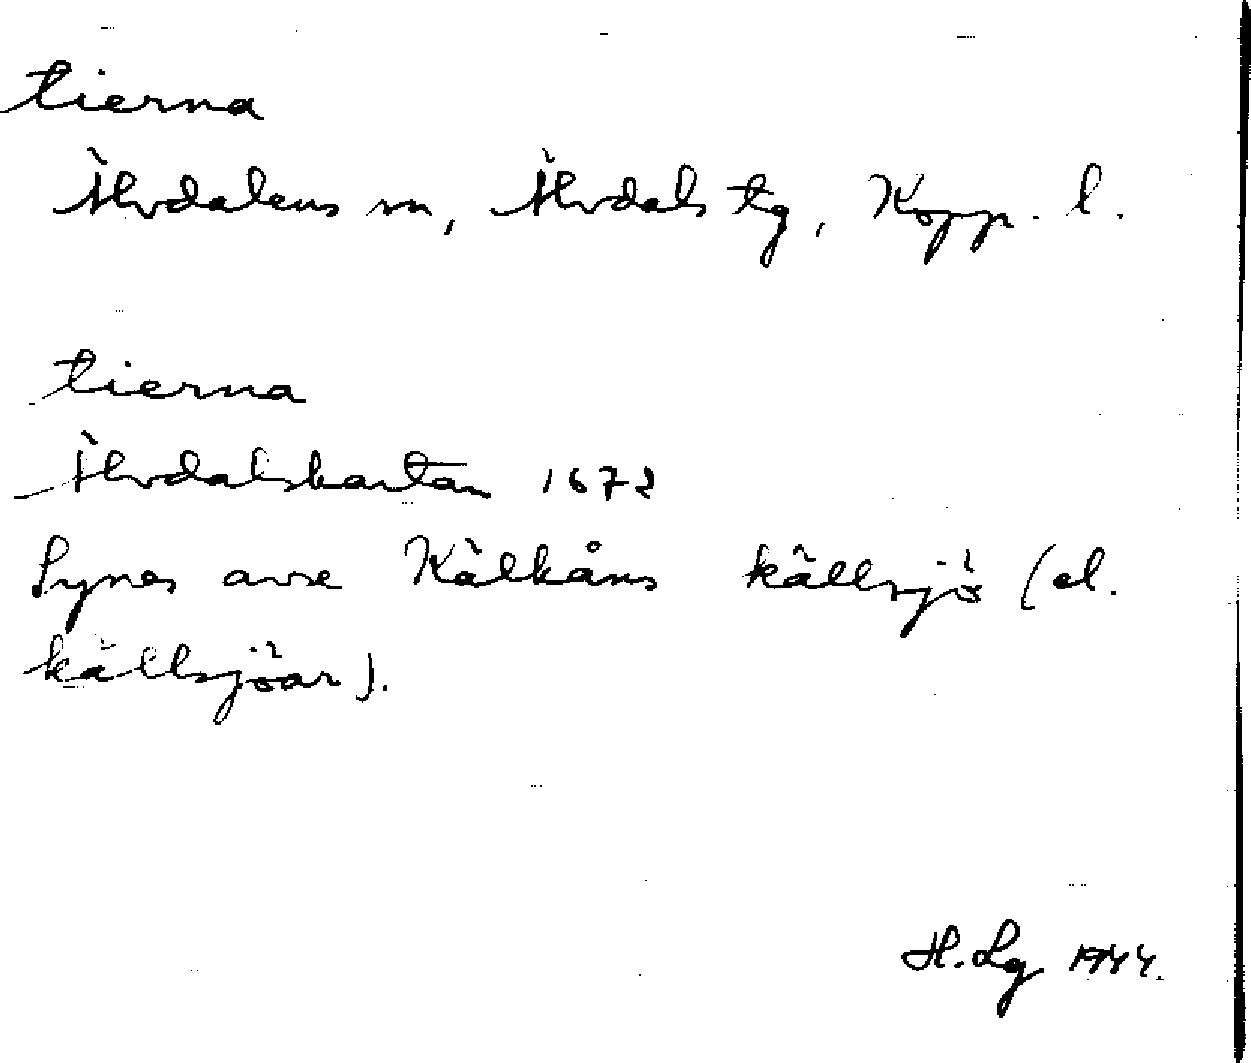 tierna
Älvdalens sn, Älvdals tg, Kopp. l.
tierna
Älvdalskartan 1672
Synes avse Kälkåns källsjö (el.
källsjöar).
H. Lg 1944.